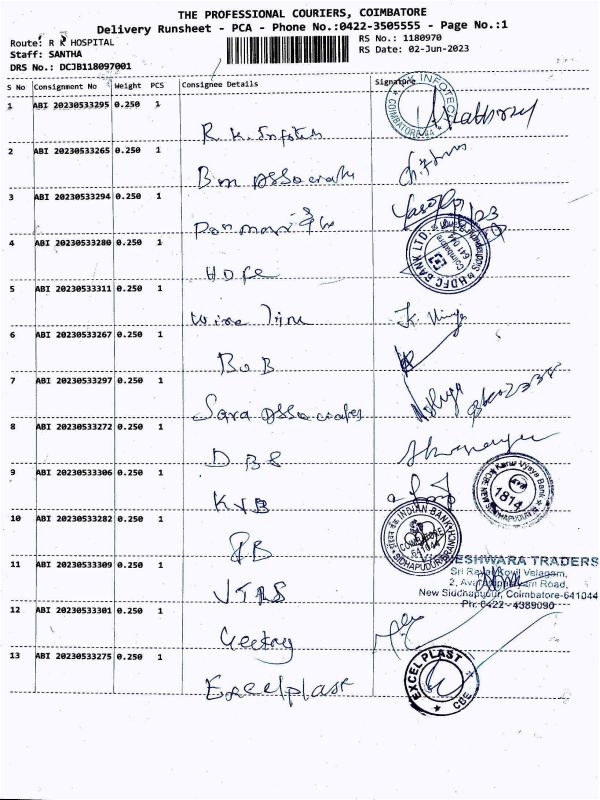 THE PROFESSIONAL COURIERS, COIMBATORE
Delivery Runsheet - PCA - Phone No.:0422-3505555 - Page No.:1
Route: R K HOSPITAL
RS No.: 1180970
Staff: SANTHA
RS Date: 02-Jun-2023
DRS No.: DCJB118097001
S No Consignment No Weight PCS Consignee Details Signature
1 ABI 20230533295 0.250 1
R.K. Infotech
2 ABI 20230533265 0.250 1
Bm Associates
3 ABI 20230533294 0.250 1
4 ABI 20230533280 0.250 1
HDFC BANK LTD.
Coimbatore
641 044
HDFC
5 ABI 20230533311 0.250 1
6 ABI 20230533267 0.250 1
BOB
7 ABI 20230533297 0.250 1
Sara Associates
8 ABI 20230533272 0.250 1
DBS
9 ABI 20230533306 0.250 1
Karur Vysya Bank
1814
KVB
10 ABI 20230533282 0.250 1
INDIAN BANK
SIDHAPUDUR BRANCH
IB
11 ABI 20230533309 0.250 1
ESHWARA TRADERS
Velagam,
2, Road,
New Siddhapudur, Coimbatore-641044
Ph: 0422 - 4389090
12 ABI 20230533301 0.250 1
13 ABI 20230533275 0.250 1
EXCEL PLAST
CBE
Excelplast